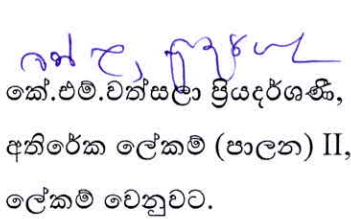 කේ.එම්.වත්සලා ප්‍රියදර්ශණී,
අතිරේක ලේකම් (පාලන) II,
ලේකම් වෙනුවට.